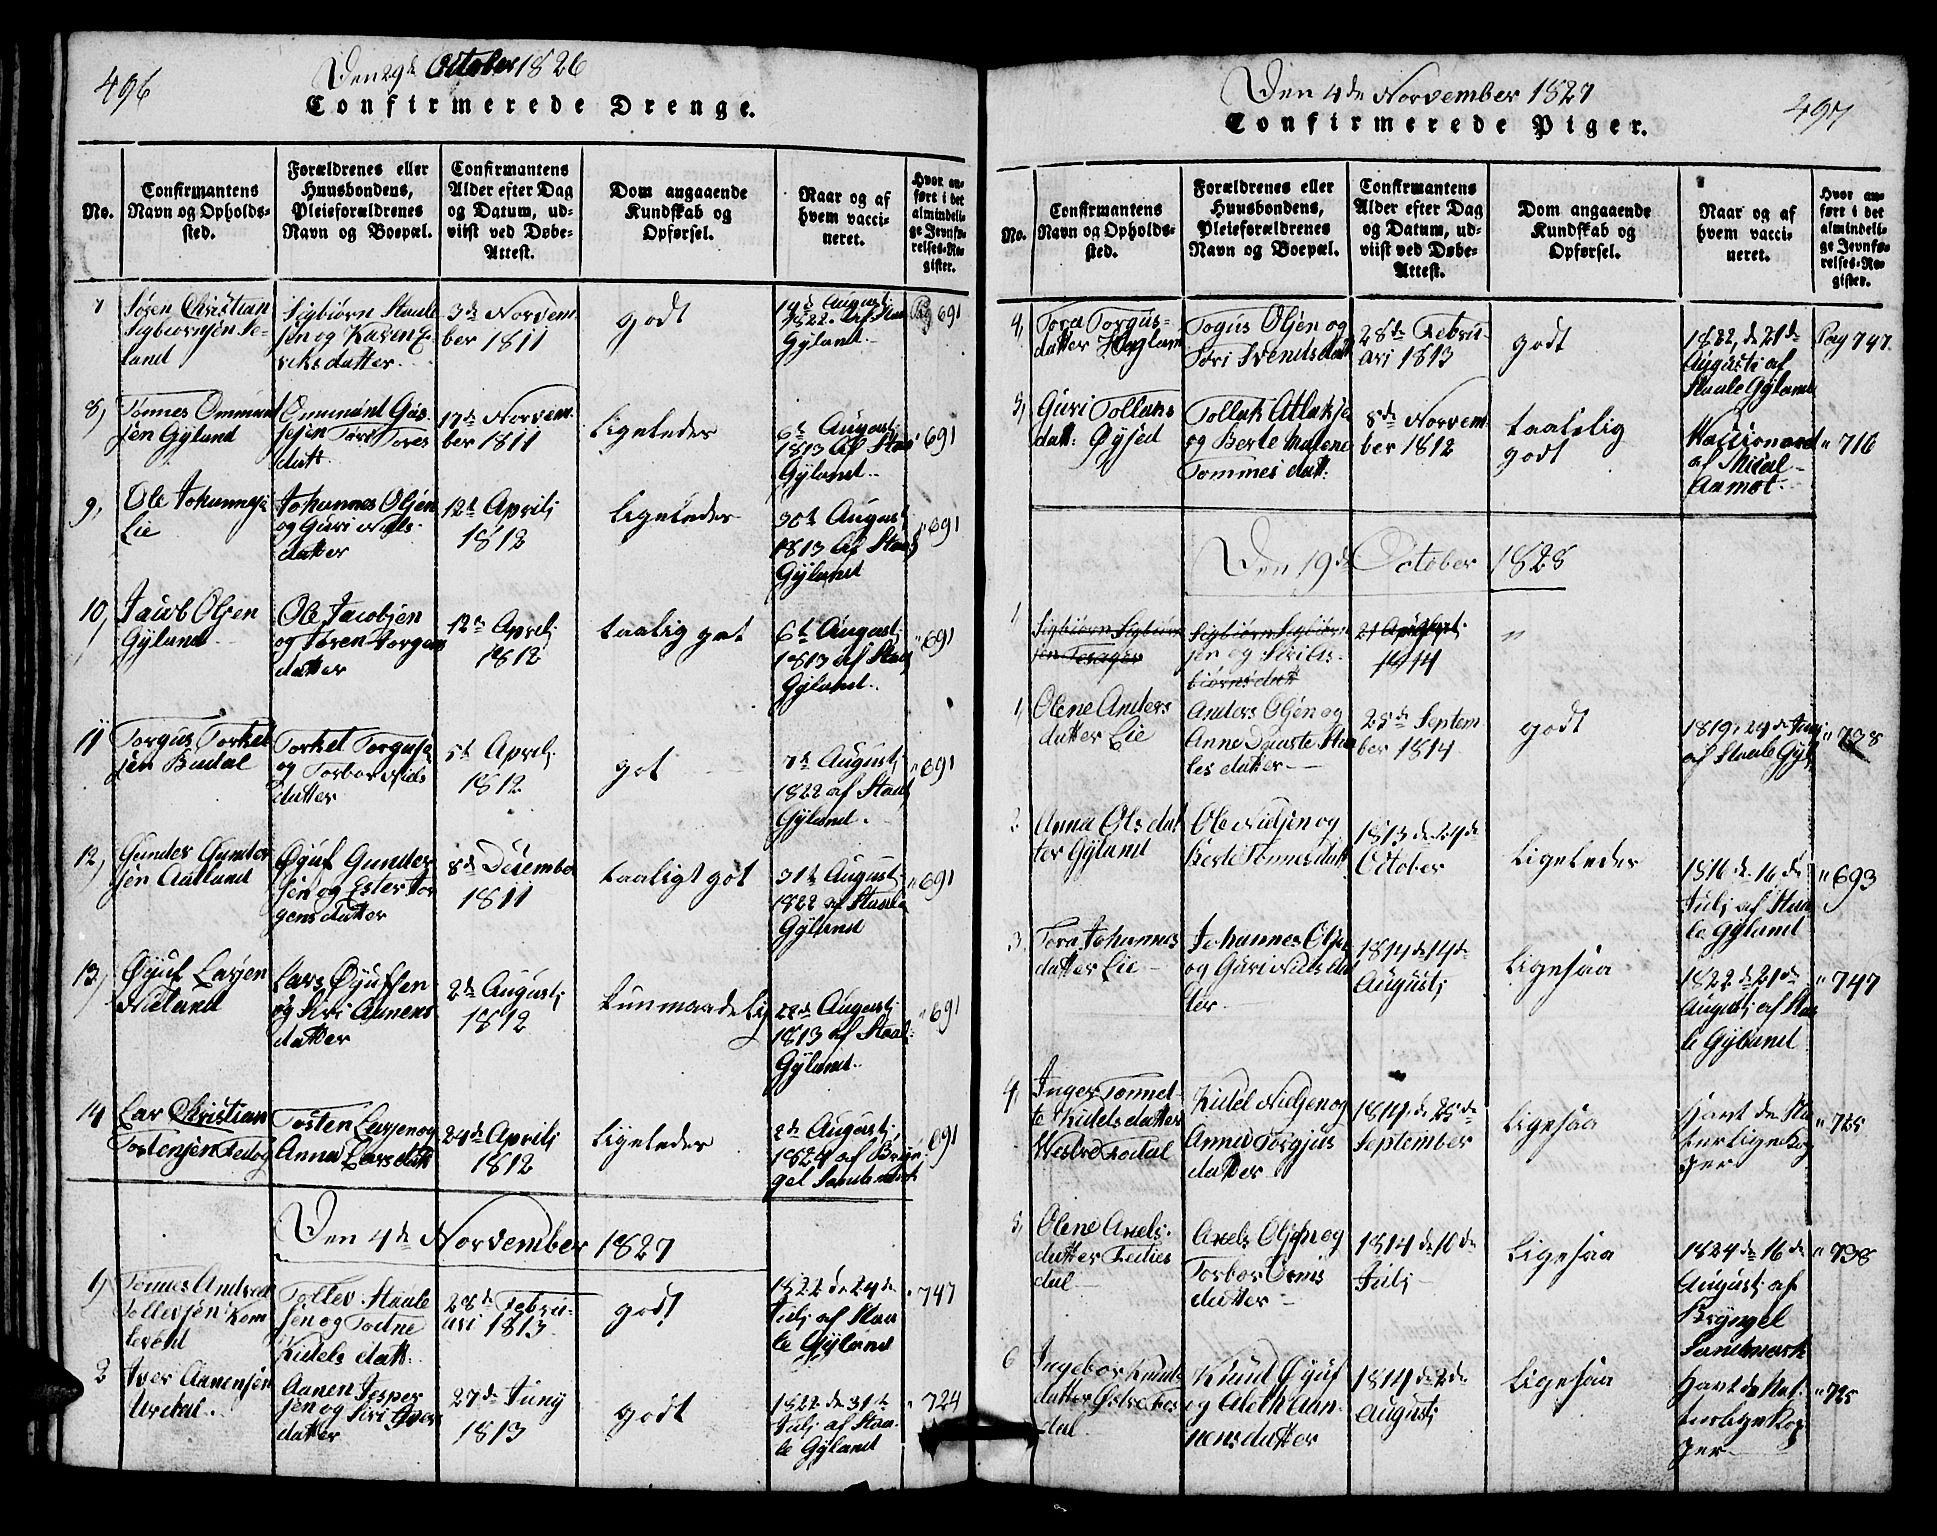 496
Den 29de October 1826
Confirmerede Drenge.
No.
Confirmantens
Navn og Opholds-
sted.
Forældrenes eller
Huusbondens,
Pleieforældrenes
Navn og Boepæl.
Confirmantens
Alder efter Dag
og Datum, ud-
viist ved Døbe-
Attest.
Dom angaaende
Kundskab og
Opførsel.
Naar og af
hvem vacci-
neret.
Hvor an-
ført i det
almindeli-
ge Jevnfø-
relses-Re-
gister.
7
Søren Christian
Sigbiørnsen
land
Sigbiørn Staale
sen og Karen E-
riks datter
3de Novem
ber 1811
godt
August
1822 af Staa
Gyland
Pag 691
8,
Tønnes Ommund
sen Gyland
Ommund Gus
sen Tore
datt.
17de Novem
ber 1811
Ligeledes
6te August
1813 af Staa
Gyland
" 691
9,
Ole Johannesen
Lie
Johannes Olsen
og Guri Niels
datter
12te Aprili
1812
Ligeledes
30te August
1813 af Staa
Gyland
" 691
10,
Jacob Olsen
Gyland
Ole Jacobsen
og Tøren Torgus
datter
12te Aprili
1812
taalig got
6te August
1813 af Staa
Gyland
" 691
11
Torgus Torkel
sen Birdal
Torkel Torgusen
og Torbor Niels
datter
5te Aprili
1812
got
7de August
1822 af Staa
Gyland
" 691
12,
Gunder Gunder
sen Aatland
Øyuf Gunder
sen og Ester Tor
gens datter
8de December
1811
taaligt got
31te August
1822 af Staale
Gyland
" 691
13,
Øyuf Larsen
Nieland
Lars Øyufsen
og Siri Aanens
datter
2de Augusti
1812
tunmaadelig
28de August
1813 af Staal
Gyland
" 691
14
Lar Christian
Tostensen
Tosten Larsen og
Anna Lars datt
24de Aprili
1812
Ligeledes
2de August
1824 af Bryn
gel Sandmark
691
Den 4de November 1827
1,
Tønnes Andreas
Tollevsen Kom
levold
Tollev Staale
sen og Todne
Kidels datt.
28de Febru-
ari 1813
godt
1822 de 24de
Juli af Staa
le Gyland
" 747
2
Iver Aanensen
Urdal
Aanen Jesper
sen og Siri Ivers
datter
27de Juny
1813
godt
1822 de 31te
Juli af Staa
le Gyland
" 724
497
Den 4de November 1827
Confirmerede Piger.
No.
Confirmantens
Navn og Opholds-
sted.
Forældrenes eller
Huusbondens,
Pleieforældrenes
Navn og Boepæl.
Confirmantens
Alder efter Dag
og Datum, ud-
viist ved Døbe-
Attest.
Dom angaaende
Kundskab og
Opførsel.
Naar og af
hvem vacci-
neret.
Hvor an-
ført i det
almindeli-
ge Jevnfø-
relses-Re-
gister.
4,
Tora Torgus-
datter
Togus Olsen og
Siri Svends datt
28de Febru-
ari 1813
godt
1822, de 21de
Augusti af
Staale Gyland
Pag 747
5,
Guri Tollaks
datt: Øysed
Tollak Atlaksen
og Berte Malene
Tommes datt:
8de Novem
ber 1812
taalelig
godt
Vaccioneret
af Mical
Aamot
" 716
Den 19de October 1828
1
Sigbiørn Sigbiørn
sen
Sigbiørn Sigbiørn
sen og Siri Us
biørns datt
21 August
1814
"
1,
Olene Anders
datter Lie
Anders Olsen og
Anne Staa
les datter
25de Septem
ber 1814
godt
1819, 24de Juni
af Staale Gyl
" 738
2
Anna Ols dat
ter Gyland
Ole Nielsen og
Berte Tønnes datt
1813 de 24de
October
Ligeledes
1816 de 16de
Juli af Staa
le Gyland
" 693
3,
Tora Johannes
datter Lie
Johannes Olsen
og Guri Niels dat
ter
1814 de 14de
Augusti
Ligesaa
1822 de 21de
Augusti af Staa
le Gyland
" 747
4,
Inger Tonnet-
te Kidels datter
Vestre Fedal
Kidel Nielsen og
Anna Torgjus
datter
1814 de 25de
September
Ligesaa
havt de Na
turlige Kop
per
" 725
5,
Olene Axels
datter Fedes
dal
Axels Olsen og
Torbor Orms
datter
1814 de 10de
Juli
Ligesaa
1824 de 16de
Augusti af
Bryngel
Sandmark
" 738
6
Ingebor Knuds
datter Østre
dal
Knud Øyuf
og Aleth Aa
nens datter
1814 de 2de
Augusti
Ligesaa
havt de Na
turlige Kop
per
" 725